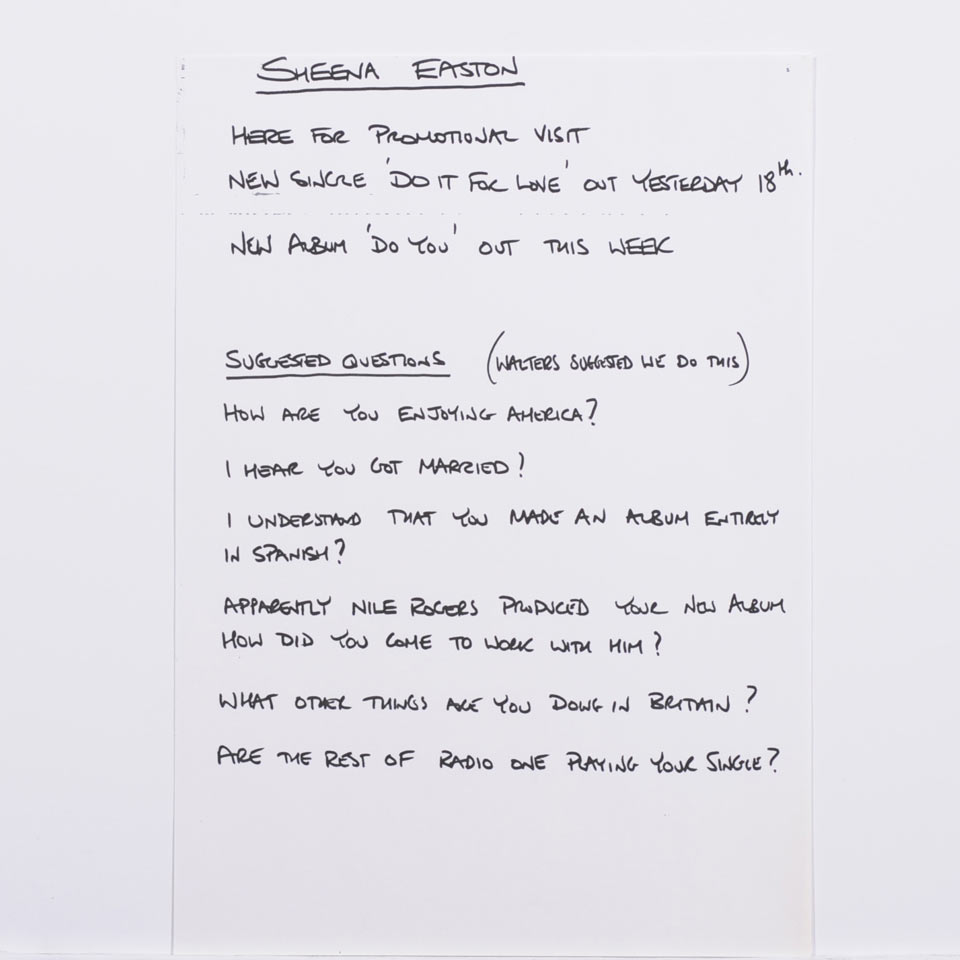 SHEENA EASTON
HERE FOR PROMOTIONAL VISIT
NEW SINGLE 'DO IT FOR LOVE' OUT YESTERDAY 18th.
NEW ALBUM 'DO YOU' OUT THIS WEEK
SUGGESTED QUESTIONS (WALTERS SUGGESTED WE DO THIS)
HOW ARE YOU ENJOYING AMERICA?
I HEAR YOU GOT MARRIED?
I UNDERSTAND THAT YOU MADE AN ALBUM ENTIRELY
IN SPANISH?
APPARENTLY NILE ROGERS PRODUCED YOUR NEW ALBUM
HOW DID YOU COME TO WORK WITH HIM?
WHAT OTHER THINGS ARE YOU DOING IN BRITAIN?
ARE THE REST OF RADIO ONE PLAYING YOUR SINGLE?